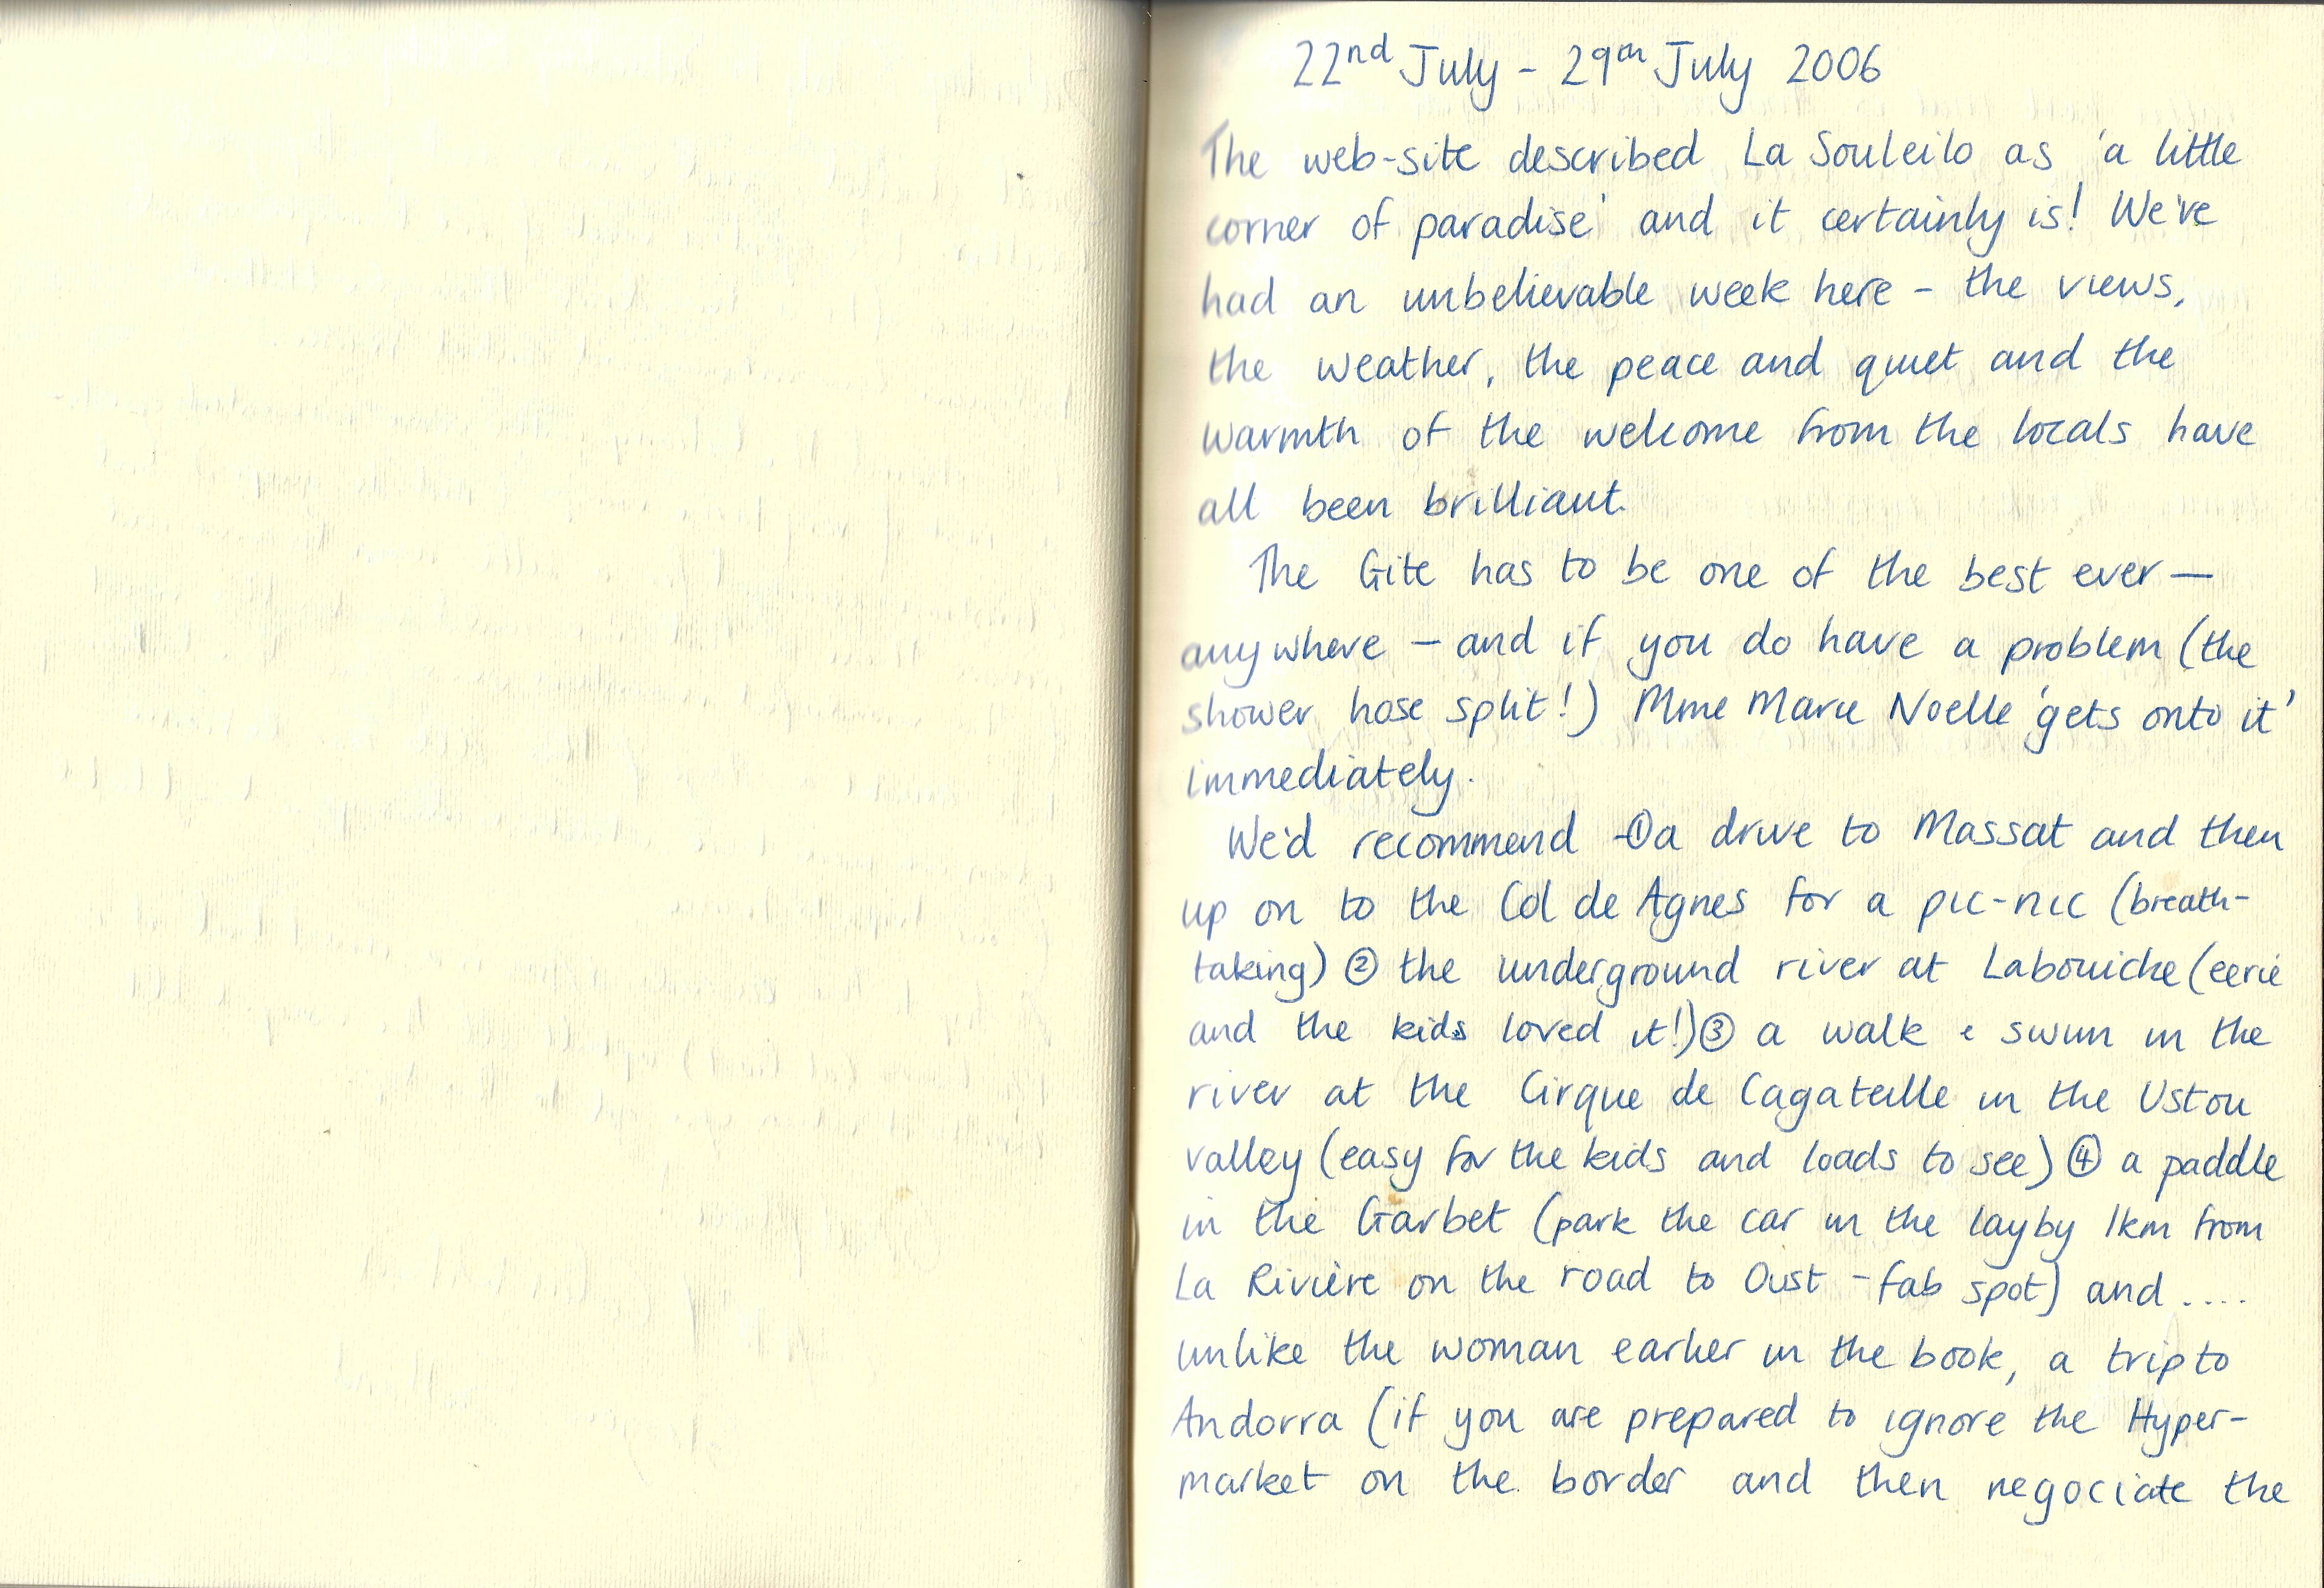 22nd July - 29th July 2006
The web-site described La Souleilo as 'a little
corner of paradise' and it certainly is! We've
had an unbelievable week here - the views,
the weather, the peace and quiet and the
warmth of the welcome from the locals have
all been brilliant.
The Gite has to be one of the best ever —
anywhere — and if you do have a problem (the
shower hose split!) Mme Marie Noelle 'gets onto it'
immediately.
We'd recommend - ① a drive to Massat and then
up on to the Col de Agnes for a pic-nic (breath-
taking) ② the underground river at Labouiche (eerie
and the kids loved it!) ③ a walk & swim in the
river at the Cirque de Cagateille in the Ustou
valley (easy for the kids and loads to see) ④ a paddle
in the Garbet (park the car in the layby 1km from
La Rivière on the road to Oust - fab spot) and ....
unlike the woman earlier in the book, a trip to
Andorra (if you are prepared to ignore the Hyper-
market on the border and then negociate the